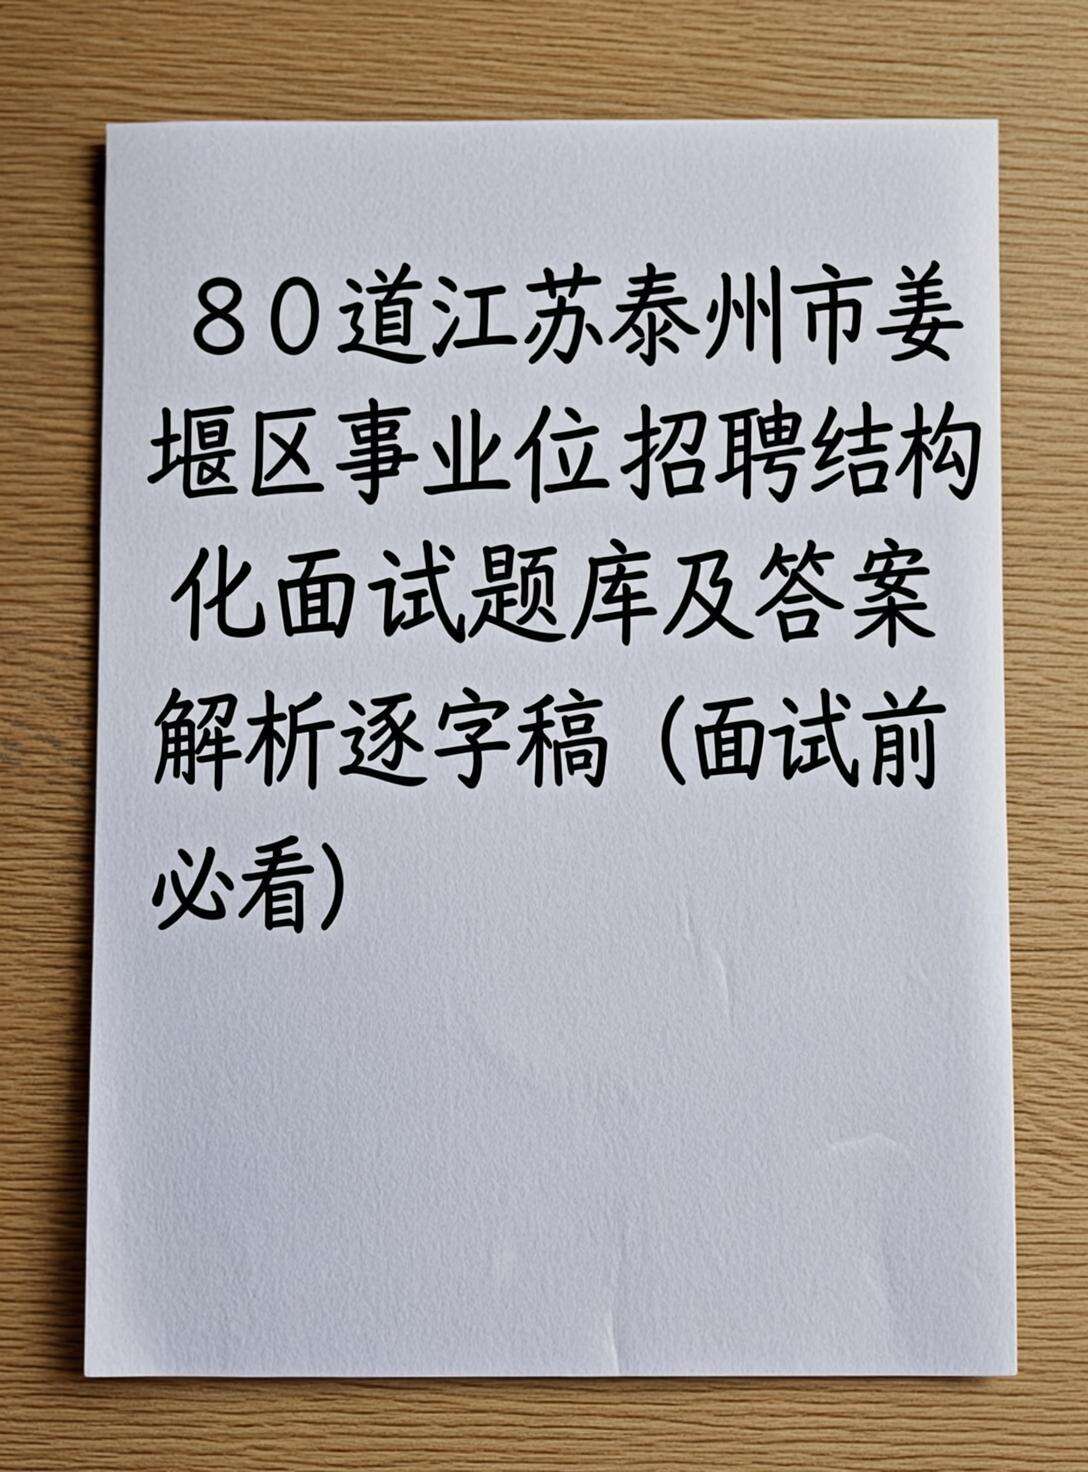 80道江苏泰州市姜
堰区事业位招聘结构
化面试题库及答案
解析逐字稿（面试前
必看）